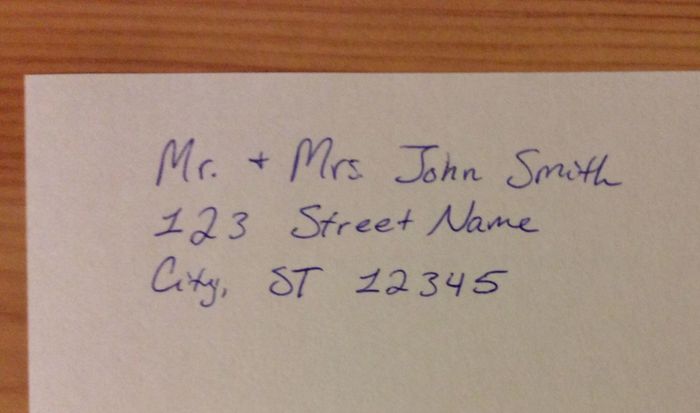 Mr. + Mrs. John Smith
123 Street Name
City, ST 12345